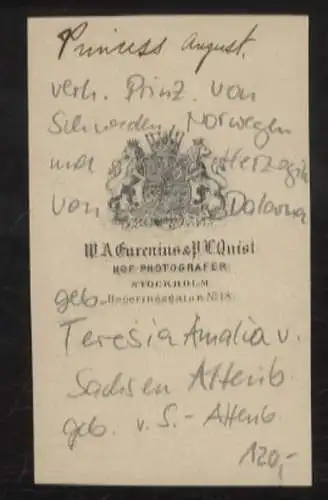 Princess August.
verh. Prinz von
Schweden, Norwegen
und Herzogin
von Dalarna
W.A. Eurenius & P.L. Quist
HOF-PHOTOGRAFER
STOCKHOLM
Regeringsgatan No 18.
geb.
Teresia Amalia v.
Sachsen Altenb.
geb. v. S.-Altenb.
120,-